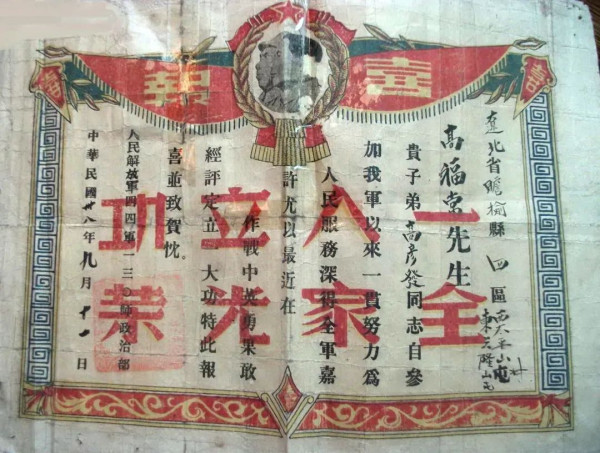 喜報
喜
喜
一人立功
全家光榮
遼北省瞻榆縣四區
高福先生
貴子弟高彥發同志自參
加我軍以來一貫努力爲
人民服務深得全軍嘉
許尤以最近在
作戰中英勇果敢
經評定立一大功特此報
喜並致賀忱。
人民解放軍四四軍一三〇師政治部
中華民國卅八年九月十一日